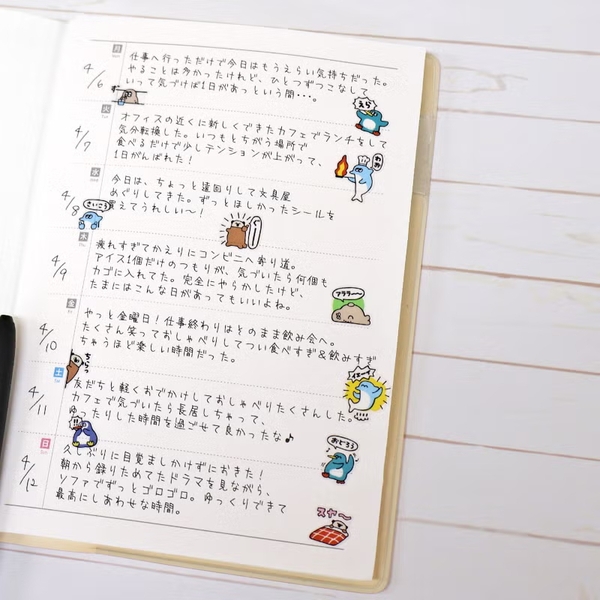 月
4/6
仕事へ行っただけで今日はもうえらい気持ちだった。
やることは多かったけれど、ひとつずつこなして
いって気づけば1日があっという間・・・。
えら
火
4/7
オフィスの近くに新しくできたカフェでランチをして
気分転換した。いつもとちがう場所で
食べるだけで少しテンションが上がって、
1日がんばれた！
わお
水
4/8
今日は、ちょっと遠回りして文具屋
めぐりしてきた。ずっとほしかったシールを
買えてうれしい〜！
さいこう
木
4/9
疲れすぎてかえりにコンビニへ寄り道。
アイス1個だけのつもりが、気づいたら何個も
カゴに入れてた。完全にやらかしたけど、
たまにはこんな日があってもいいよね。
アララ〜
金
4/10
やっと金曜日！仕事終わりはそのまま飲み会へ。
たくさん笑っておしゃべりしてつい食べすぎ&飲みすぎ
ちゃうほど楽しい時間だった。
ちらっ
イエーイ
土
4/11
友だちと軽くおでかけしておしゃべりたくさんした。
カフェで気づいたら長居しちゃって、
ゆったりした時間を過ごせて良かったな♪
日
4/12
久しぶりに目覚ましかけずにおきた！
朝から録りためてたドラマを見ながら、
ソファでずっとゴロゴロ。ゆっくりできて
最高にしあわせな時間。
おどろう
スヤ〜